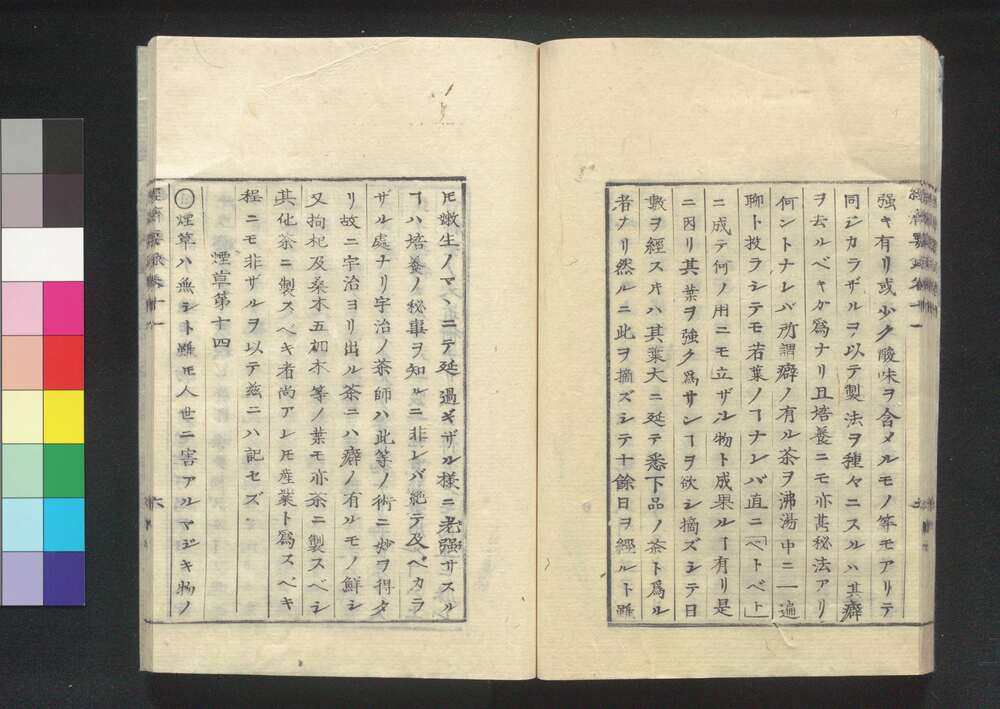 强キ有リ或少ク酸味ヲ含メルモノ等モアリテ
同ジカラザルヲ以テ製法ヲ種々ニスルハ其癖
ヲ去ルベキガ爲ナリ且培養ニモ亦其秘法アリ
何ントナレバ所謂癖ノ有ル茶ヲ沸湯中ニ一遍
聊ト投ラシテモ若葉ノヿナレバ直ニ「ベトベト」
ニ成テ何ノ用ニモ立ザル物ト成果ルヿ有リ是
ニ因リ其葉ヲ強ク爲サンヿヲ欲シ摘ズシテ日
數ヲ經スギハ其葉大ニ延テ悉下品ノ茶ト爲ル
者ナリ然ルニ此ヲ摘ズシテ十餘日ヲ經ルト雖
𪜈嫩生ノマヽニテ延過ギザル様ニ老强サスル
ヿハ培養ノ秘事ヲ知ルニ非レバ絶テ及ベカラ
ザル處ナリ宇治ノ茶師ハ此等ノ術ニ妙ヲ得タ
リ故ニ宇治ヨリ出ル茶ニハ癖ノ有ルモノ鮮シ
又拘杞及桑木五加木等ノ葉モ亦茶ニ製スベシ
其他茶ニ製スベキ者尚アレ𪜈産業ト爲スベキ
程ニモ非ザルヲ以テ茲ニハ記セズ
煙草第十四
○煙草ハ無シト雖モ人世ニ害アルマジキ物ノ
六